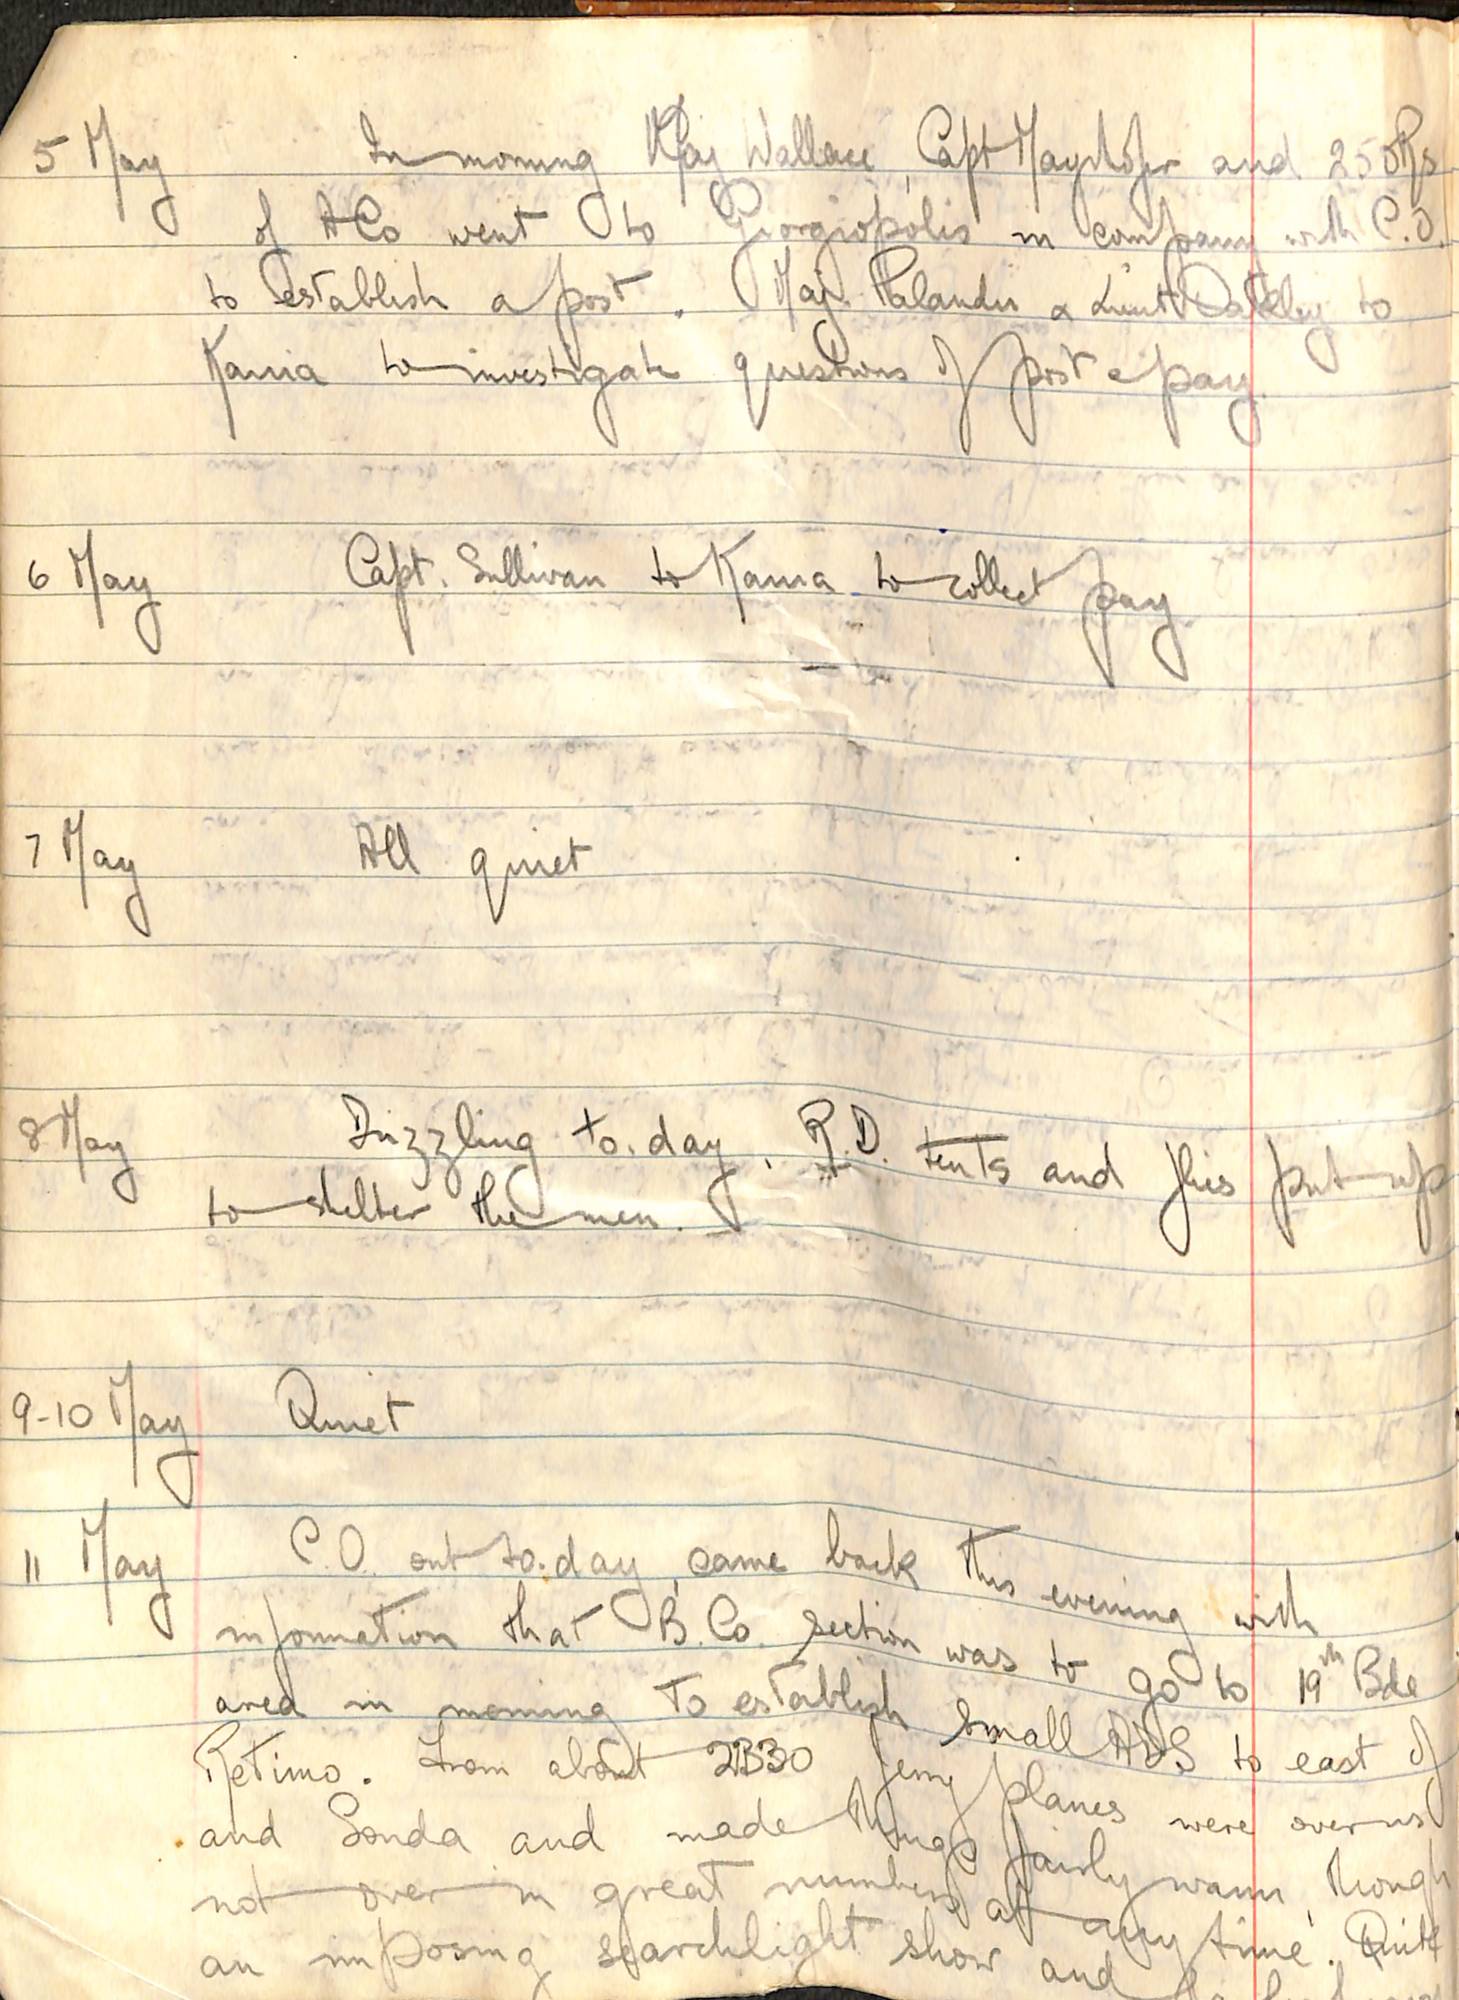 5 May In morning Maj Wallace, Capt Mayrhofer and 25 ORs
of A Co went to Giorgiopolis in company with C.O.
to establish a post. Maj. Palandri & Lieut Oakley to
Kania to investigate questions of post & pay.
6 May Capt. Sullivan to Kania to collect pay
7 May All quiet
8 May Drizzling to-day. R.D. tents and flies put up
to shelter the men.
9-10 May Quiet
11 May C.O. out to-day, came back this evening with
information that B. Co. section was to go to 19th Bde
area in morning to establish small ADS to east of
Retimo. From about 2330 Jerry planes were over us
and Souda and made things fairly warm, though
not over in great numbers at any time. Quite
an imposing searchlight show and